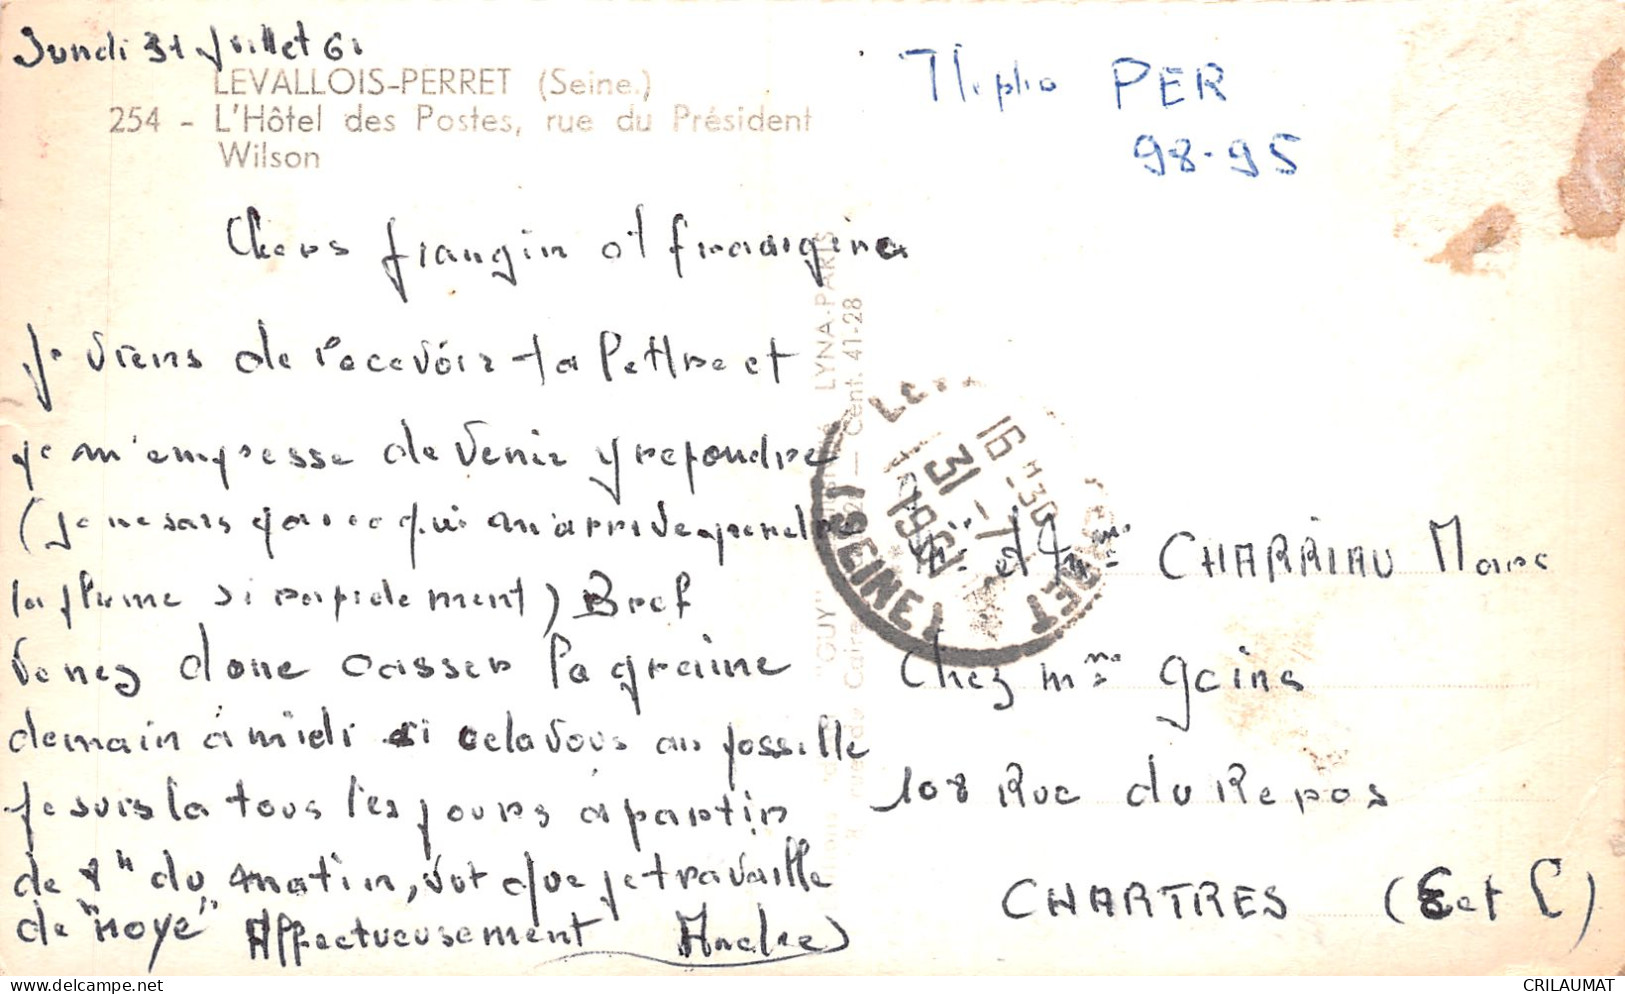 Lundi 31 Juillet 61
LEVALLOIS-PERRET (Seine.)
254 - L'Hôtel des Postes, rue du Président
Wilson
Chers frangin et frangine
je viens de recevoir ta lettre et
je m'empresse de venir y repondre
(je ne sais pas ce qui m'arrive prendre
la plume si rapidement) Bref
Venez donc casser la graine
demain à midi si cela vous est possible
je suis la tous les jours a partir
de 8h du matin, vut que je travaille
de "noye" Affectueusement Andre
PER
98-95
LYNA-PARIS
Cent. 41-28
"GUY"
16 H30
31 - 7
1961
(SEINE)
et Mme CHARRIAU Marc
Chez mme Gaine
108 Rue du Repos
CHARTRES (E et L)
CRILAUMAT